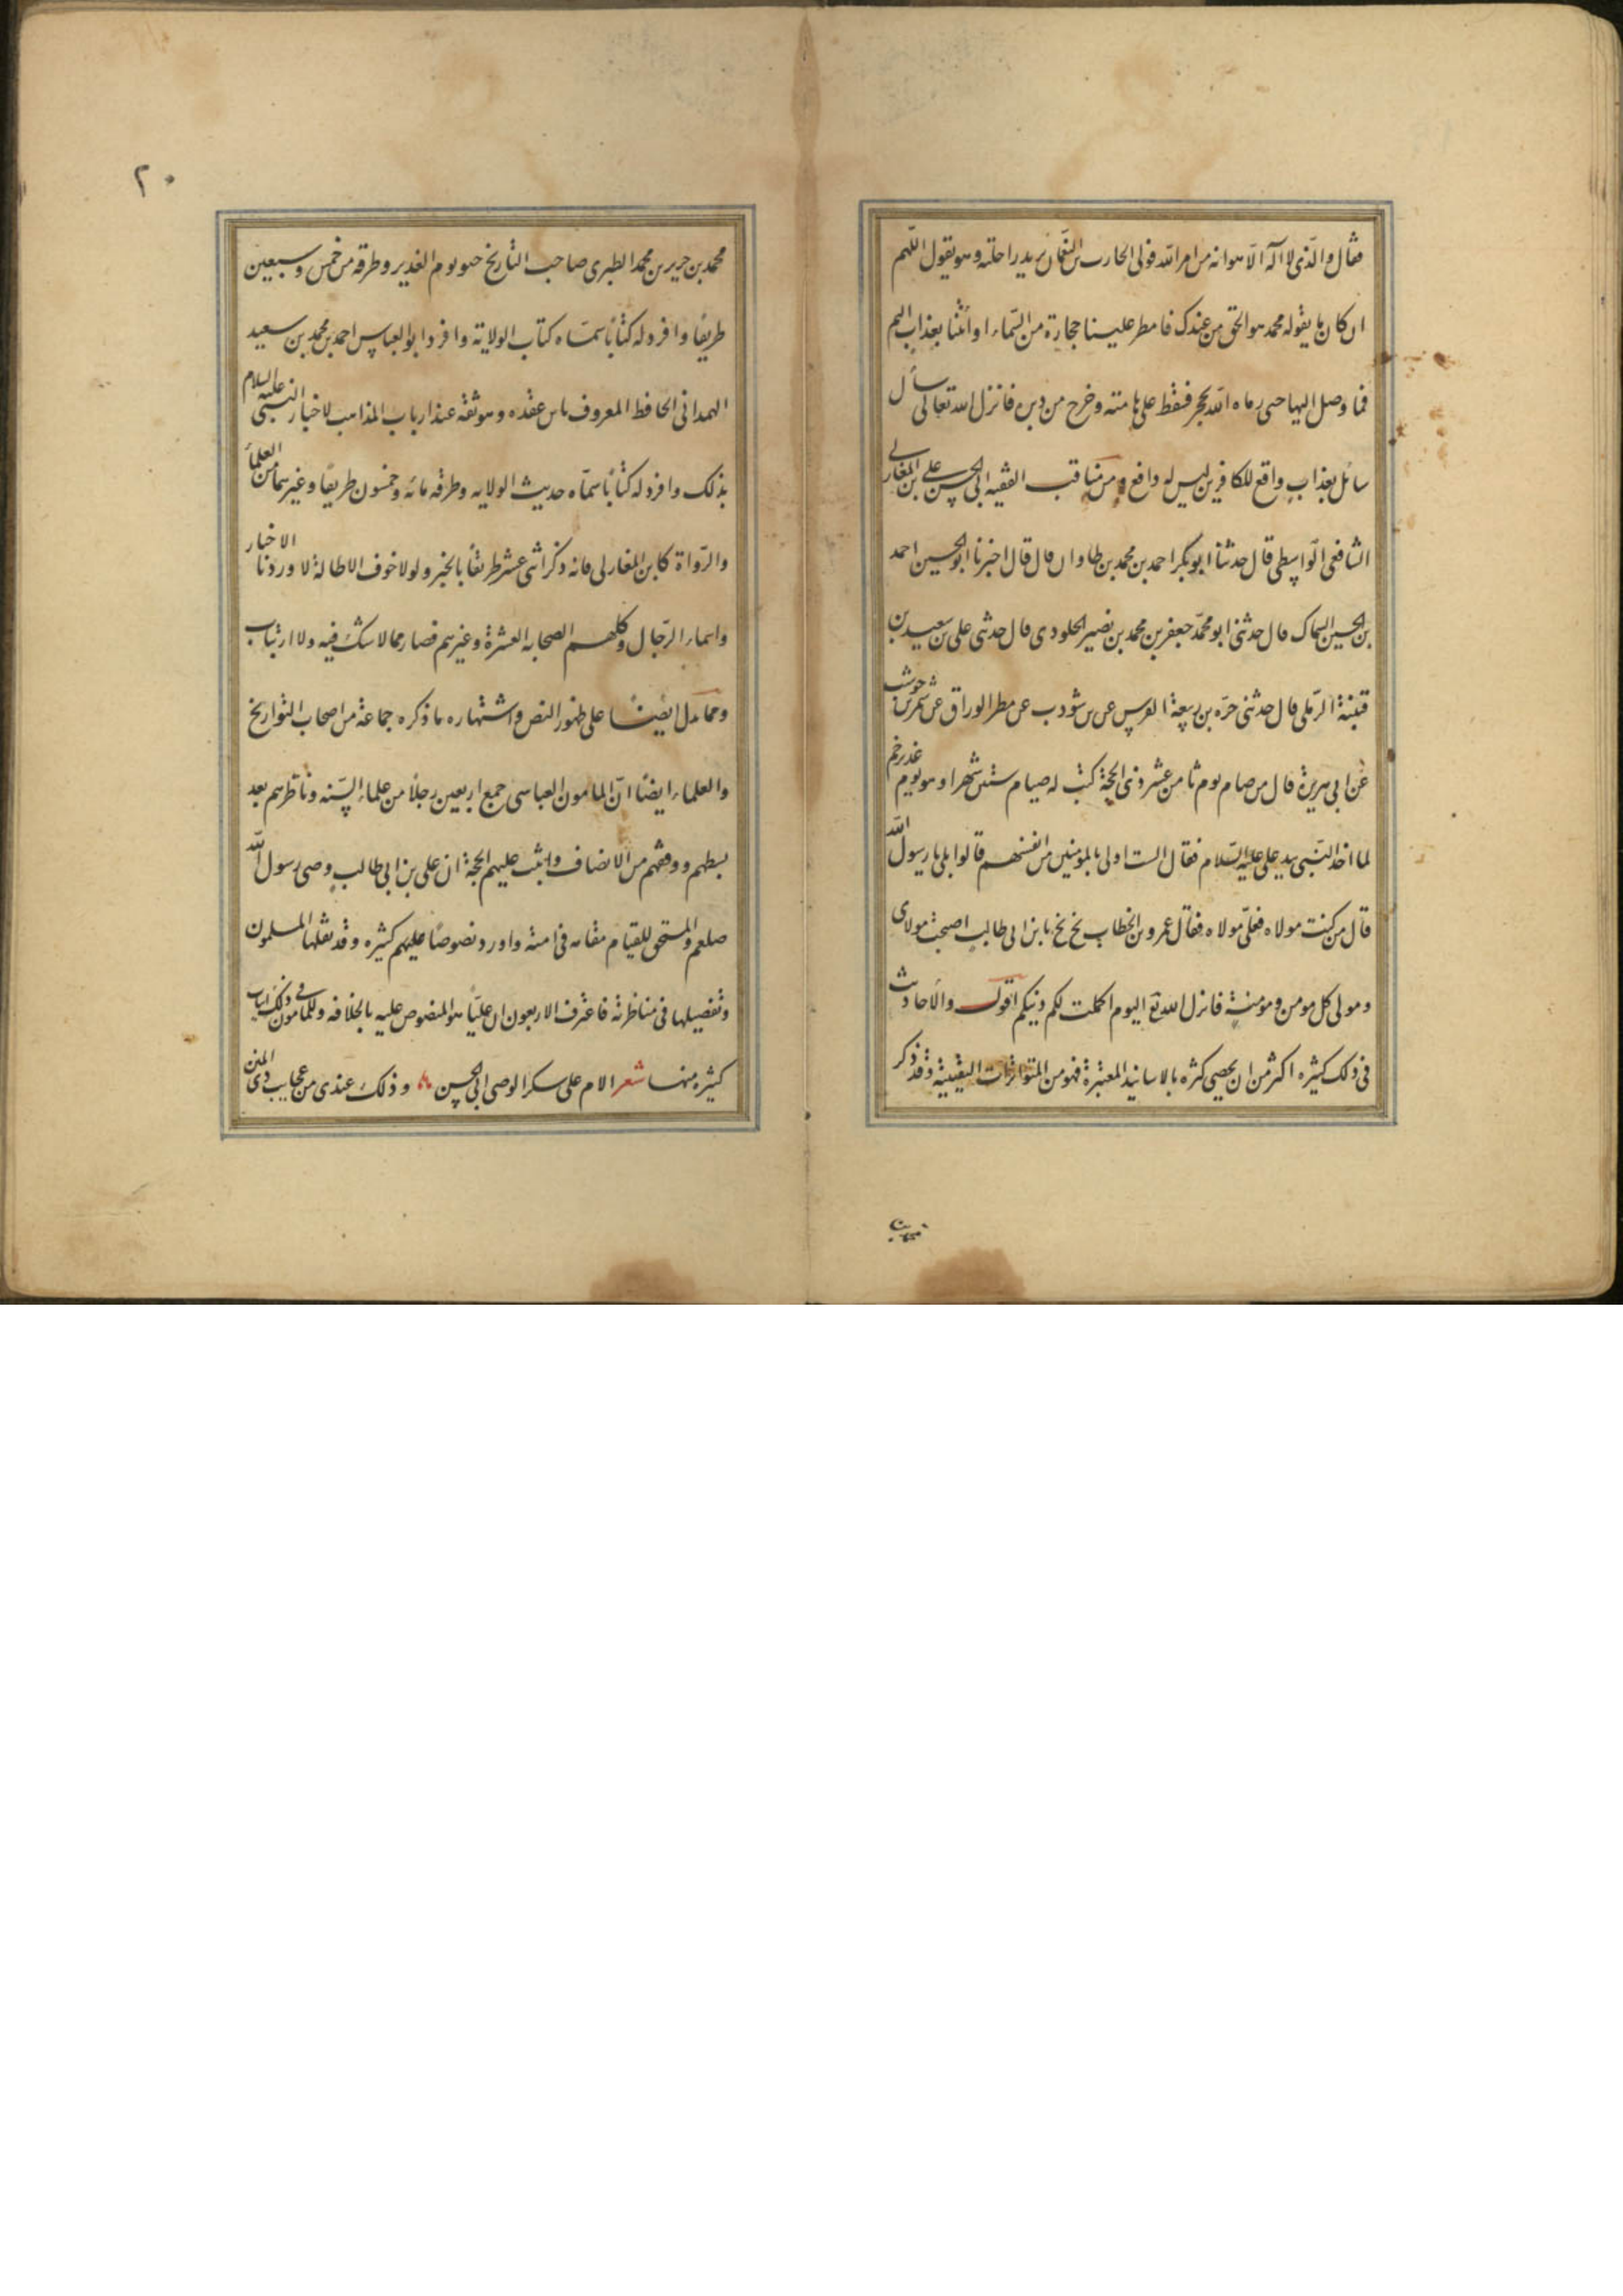 فقال والذی لا اله الا هو انه من امر الله فولی الحارث بن النعمان یرید راحلته وهو یقول اللهم
ان کان ما یقوله محمد هو الحق من عندک فامطر علینا حجارة من السماء او ائتنا بعذاب الیم
فما وصل الیها حتی رماه الله بحجر فسقط علی هامته وخرج من دبره فانزل الله تعالی سأل
سائل بعذاب واقع للکافرین لیس له دافع ومن مناقب الفقیه ابی الحسن علی بن المغازلی
الشافعی الواسطی قال حدثنا ابو بکر احمد بن محمد بن طاوان قال قال اخبرنا ابو الحسین احمد
بن الحسین السماک قال حدثنی ابو محمد جعفر بن محمد بن نصیر الخلودی قال حدثنی علی بن سعید بن
قتیبة الرملی قال حدثنی ضمره بن ربیعة القرسی عن بن شوذب عن مطر الوراق عن شهر بن حوشب
عن ابی هریرة قال من صام یوم ثامن عشر ذی الحجة کتب له صیام ستین شهرا وهو یوم غدیر خم
لما اخذ النبی بید علی علیه السلام فقال الست اولی بالمومنین من انفسهم قالوا بلی یا رسول الله
قال من کنت مولاه فعلی مولاه فقال عمر بن الخطاب بخ بخ یا بن ابی طالب اصبحت مولای
ومولی کل مومن ومومنة فانزل الله تع الیوم اکملت لکم دینکم اقول والاحادیث
فی ذلک کثیره اکثر من ان یحصی کثره بالاسانید المعتبرة فهو من المتواترات الیقینیة وقد ذکر
۲۰
محمد بن جریر بن محمد الطبری صاحب التاریخ خبر یوم الغدیر وطرقه من خمس وسبعین
طریقا وافرد له کتابا سماه کتاب الولایة وافرد ابو العباس احمد بن محمد بن سعید
الهمدانی الحافظ المعروف بابن عقده وهو ثقه عند ارباب المذاهب لاخبار النبی علیه السلام
بذلک وافرد له کتابا سماه حدیث الولایه وطرقه مائه وخمسون طریقا وغیرهما من العلماء
والرواة کابن المغازلی فانه ذکر اثنی عشر طریقا بالخبر ولولا خوف الاطالة لاوردنا الاخبار
واسماء الرجال وکلهم الصحابه العشرة وغیرهم فصار مما لا شک فیه ولا ارتیاب
ومما یدل ایضا علی ظهور النص واشتهاره ما ذکره جماعة من اصحاب التواریخ
والعلماء ایضا ان المامون العباسی جمع اربعین رجلا من علماء السنه وناظرهم بعد
بسطهم ووقفهم من الانصاف واثبت علیهم الحجة ان علی بن ابی طالب وصی رسول الله
صلعم والمستحق للقیام مقامه فی امته واورد نصوصا علیهم کثیره وقد نقلها المسلمون
وتفصیلها فی مناظرته فاعترف الاربعون ان علیا هو المنصوص علیه بالخلافه وللمامون فی ذلک ابیات
کثیره منها شعر الام علی شکر الوصی ابی الحسن وذلک عندی من عجایب ذی المنن